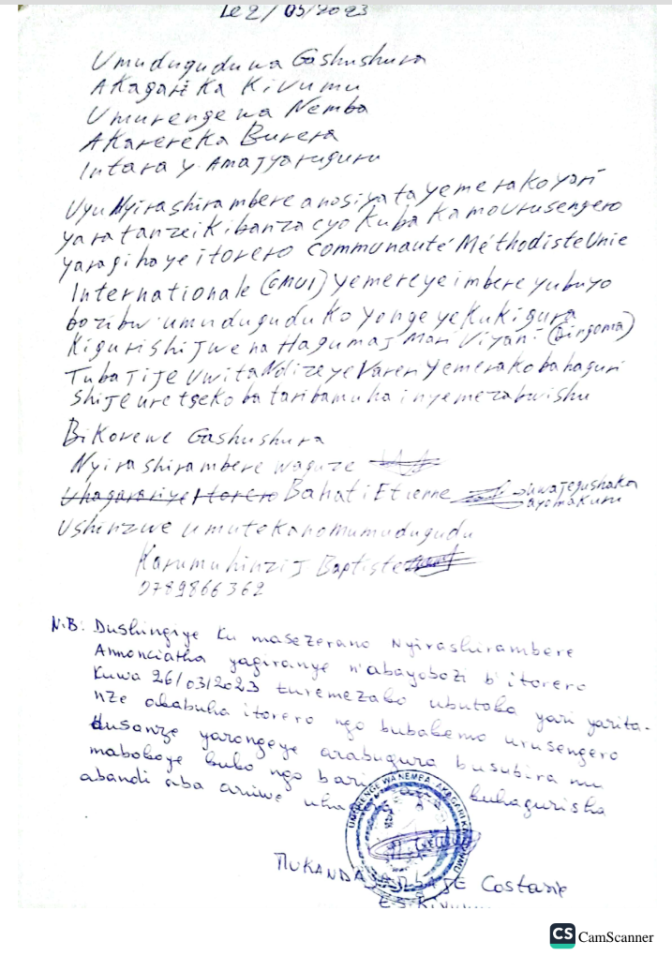 Le 2/05/2023
Umudugudu wa Gashushura
Akagari Ka Kivumu
Umurenge wa Nemba
Akarere Ka Burera
Intara y Amajyaruguru
Uyu Nyirashirambere anosiyata yemera ko yari
yaratanze ikibanza cyo Kubakamo urusengero
yaragihaye itorero Communauté Méthodiste Unie
Internationale (CMUI) yemereye imbere yubuyo
bozi bw'umudugudu ko yongeye Kukigura
Kigurishijwe na Hagumaj Mari Viyani (Birgoma)
Tubajije uwita Ndizeye Varen yemera ko bahaguri
shije uretse ko batari bamuha inyemezabwishu
Bikorewe Gashushura
Nyirashirambere waguze
Uhagarariye Itorero Bahati Etienne uwajegushaka ayomakuru
Ushinzwe umutekano mumudugudu
Karumuhinzi J Baptiste
0789866362
N.B: Dushingiye Ku masezerano Nyirashirambere
Annonciatha yagiranye n'abayobozi b'itorero
Kuwa 26/03/2023 turemezako ubutaka yari yarita-
nze akabuha itorero ngo bubakemo urusengero
dusanze yarongeye arabugura busubira mu
maboko ye kuko ngo bari kuhagurisha
abandi aba ariwe uha
UMURENGE WA NEMBA AKAGARI KA KIVUMU
Costasie